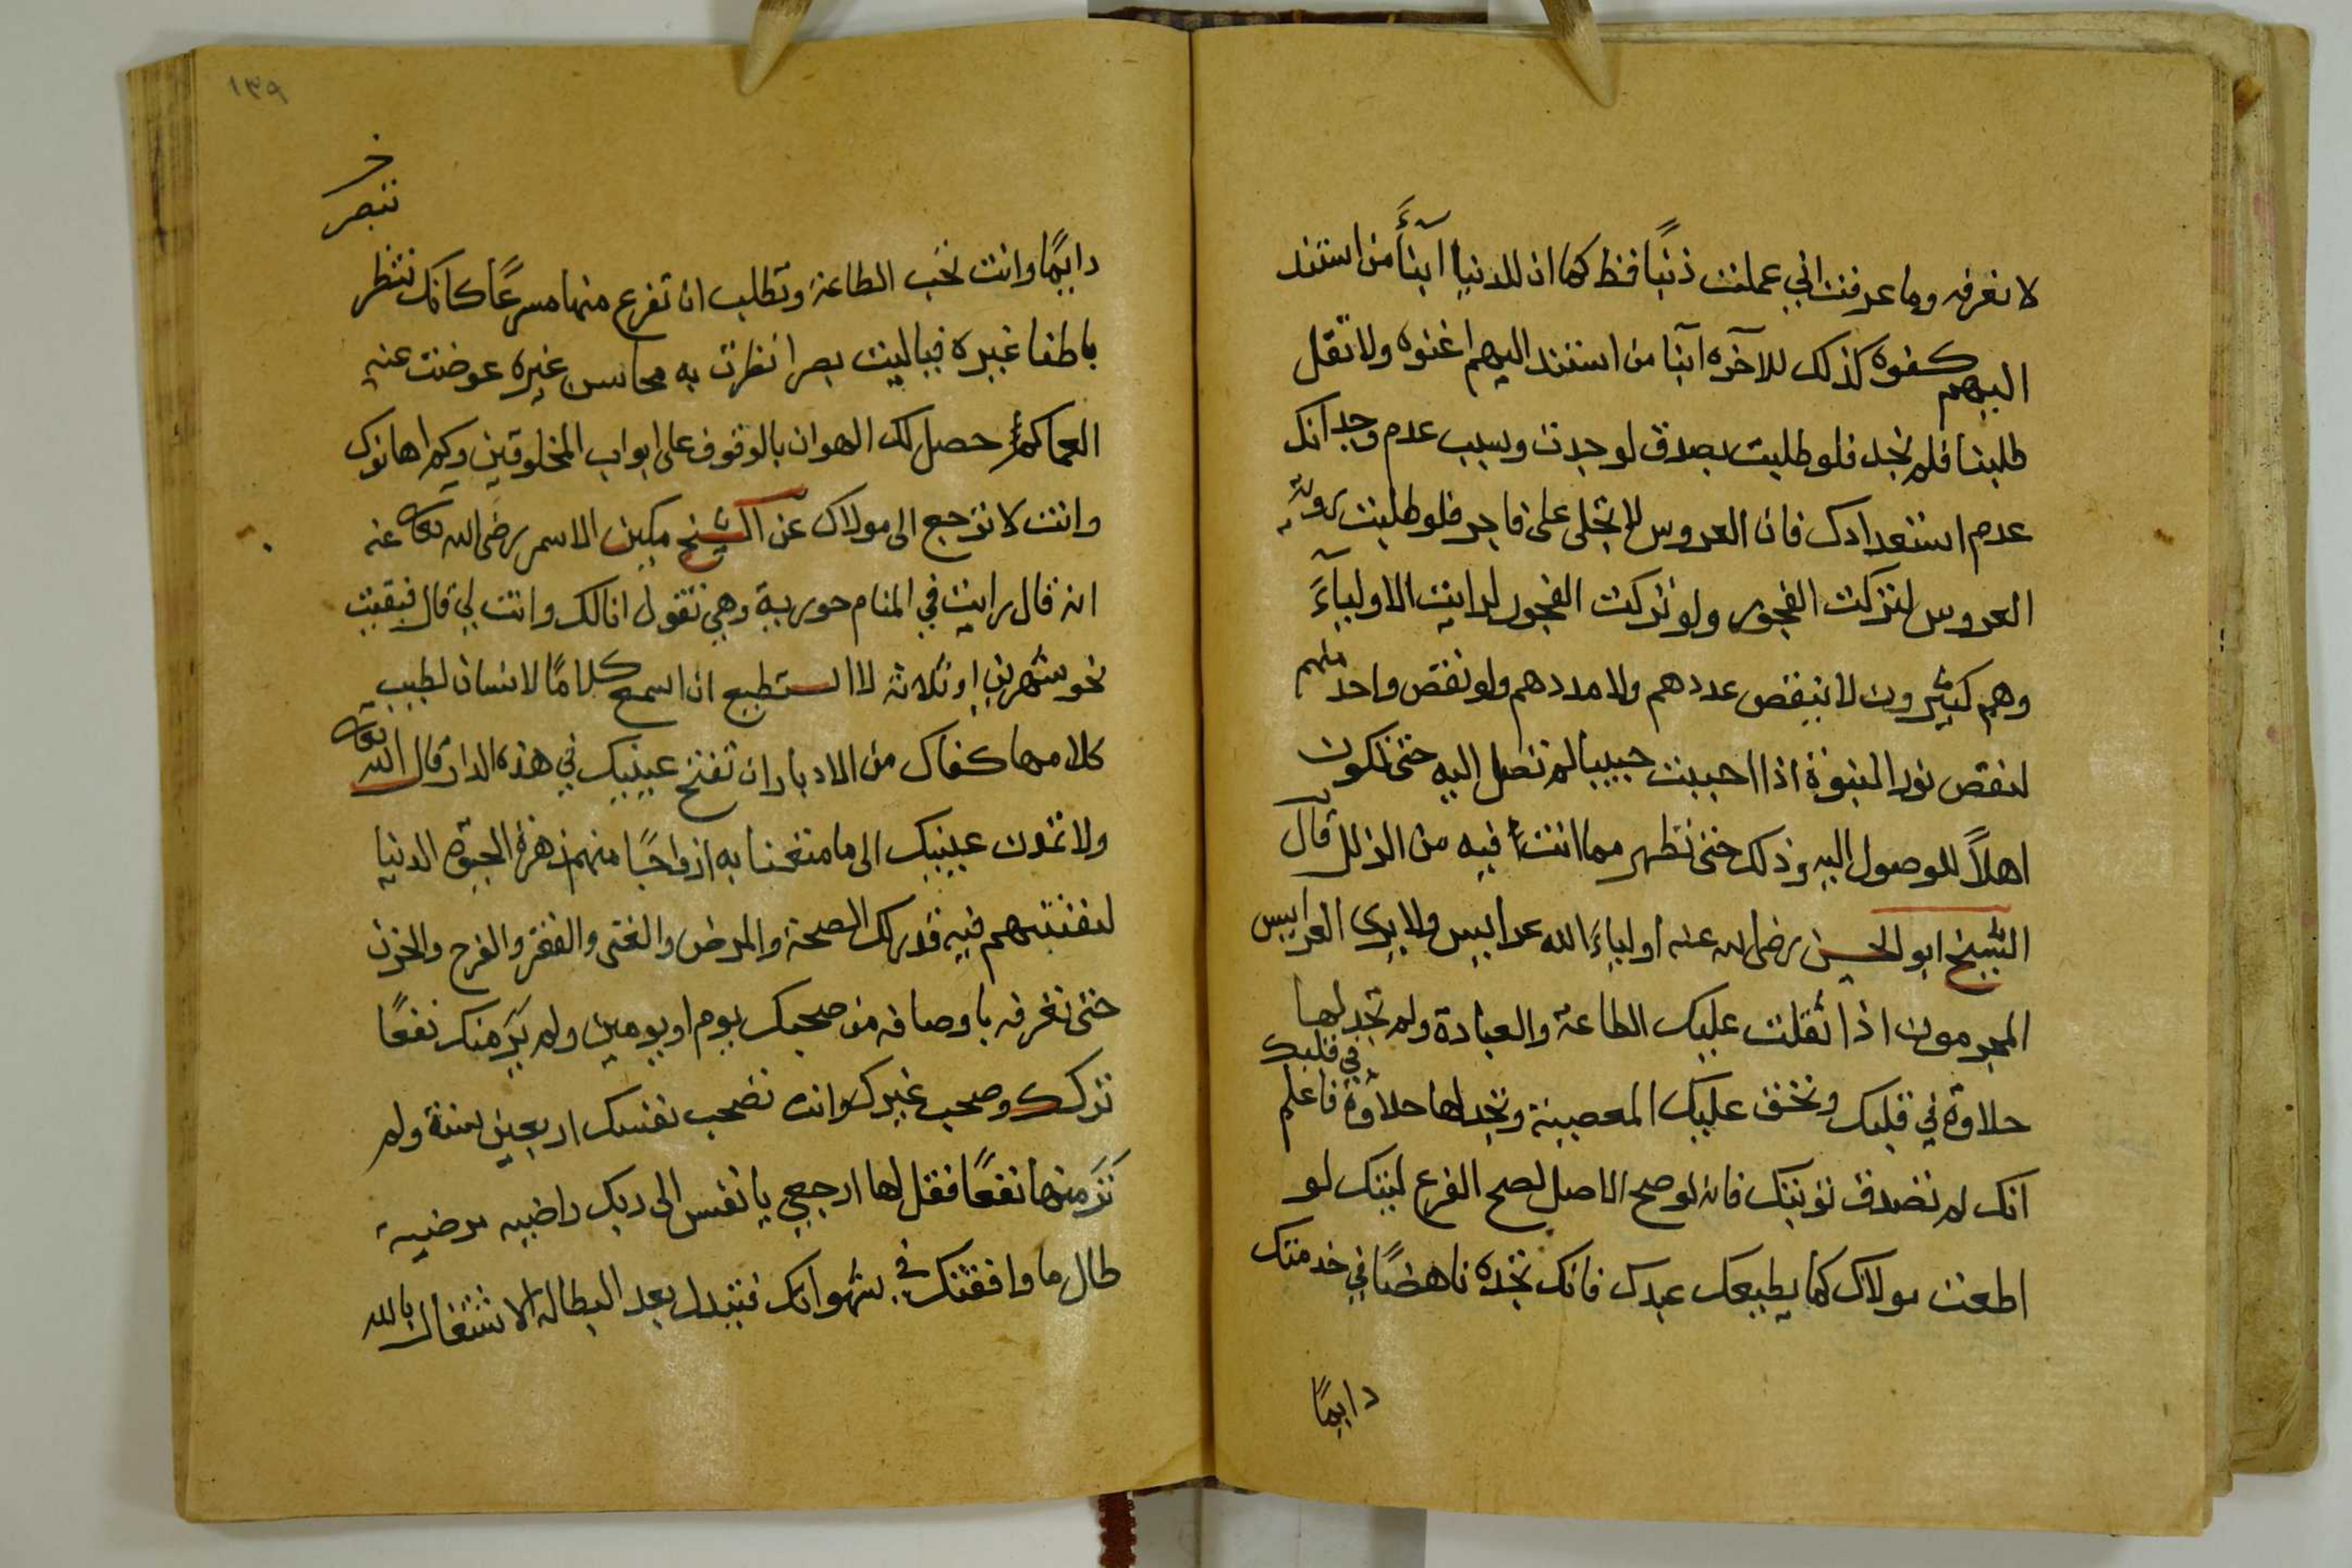 لا تعرفه وما عرفت اني عملت ذنبًا قط كما ان للدنيا ابنآءً من استند
اليهم كفوه كذلك للآخره ابنآ من استند اليهم اغنوه ولا تقل
طلبنا فلم نجد فلو طلبت بصدق لوجدت وسبب عدم وجدانك
عدم استعدادك فان العروس لا تجلى على فاجر فلو طلبت روية
العروس لتركت الفجور ولو تركت الفجور لرايت الاوليآءَ
وهم كثيرون لا ينقص عددهم ولا مددهم ولو نقص واحد منهم
لنقص نور النبوة اذا احببت حبيبا لم تصل اليه حتى تكون
اهلاً للوصول اليه وذلك حتى تطهر مما انت فيه من الذلل قال
الشيخ ابو الحسن رضى الله عنه اولياءَ الله عرايس ولا يرى العرايس
المجرمون اذا ثقلت عليك الطاعة والعبادة ولم تجد لها
حلاوة في قلبك وتخف عليك المعصية وتجد لها حلاوة في قلبك فاعلم
انك لم تصدق توبتك فانه لو صح الاصل لصح الفرع ليتك لو
اطعت مولاك كما يطيعك عبدك فانك تجده ناهضًا في خدمتك
دايمًا
١٣٩
خ
تبصر
دايمًا وانت تحب الطاعة وتطلب ان تفرع منها مسرعًا كانك تنظر
باطفا غيره فياليت بصرا نظرت به محاسن غيره عوضت عنه
العما كم حصل لك الهوان بالوقوف على ابواب المخلوقين وكم اهانوك
وانت لا ترجع الى مولاك عن الشيخ مكين الاسمر رضى الله تعالى عنه
انه قال رايت في المنام حورية وهي تقول انا لك وانت لي قال فبقيت
نحو شهرين او ثلاثة لا استطيع ان اسمع كلامًا لانسان لطيب
كلامها كفاك من الادبار ان تفتح عينيك في هذه الدار قال الله تعالى
ولا تمدن عينيك الى ما متعنا به ازواجًا منهم زهرة الحيوة الدنيا
لنفتنهم فيه قدر لك الصحة والمرض والغنى والفقر والفرح والحزن
حتى تعرفه باوصافه من صحبك يوم او يومين ولم يَرَ منك نفعًا
تركك وصحب غيرك وانت تصحب نفسك اربعين سنة ولم
تَرَ منها نفعًا فقل لها ارجعي يا نفس الى ربك راضيه مرضية
طال ما وافقتك في شهواتك فتبدل بعد البطالة الاشتغال بالله